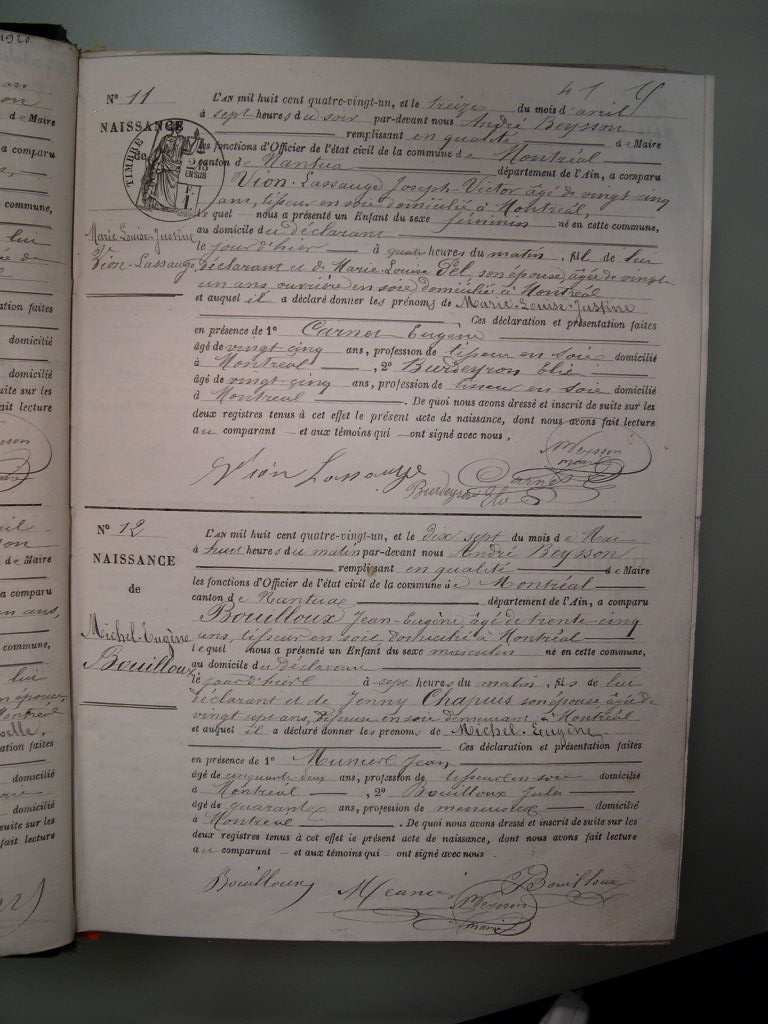 1920
41
N° 11
NAISSANCE
de
Marie Louise-Justine
Vion-Lassauge
TIMBRE
L'AN mil huit cent quatre-vingt-un, et le treize du mois d'avril
à sept heures du soir par-devant nous André Beysson
remplissant en qualité de Maire
les fonctions d'Officier de l'état civil de la commune de Montréal
canton de Nantua département de l'Ain, a comparu
Vion-Lassauge Joseph-Victor âgé de vingt cinq
ans, tisseur en soie domicilié à Montréal,
lequel nous a présenté un Enfant du sexe féminin né en cette commune,
au domicile du déclarant
le jour d'hier à quatre heures du matin, fil de lui
déclarant et de Marie Louise Pel, son épouse, âgée de vingt-
un ans, ouvrière en soie domiciliée à Montréal
et auquel il a déclaré donner les prénoms de Marie-Louise-Justine
Ces déclaration et présentation faites
en présence de 1° Carnet Eugène
âgé de vingt cinq ans, profession de tisseur en soie domicilié
à Montréal, 2° Burdeyron
âgé de vingt-cinq ans, profession de tisseur en soie domicilié
à Montréal. De quoi nous avons dressé et inscrit de suite sur les
deux registres tenus à cet effet le présent acte de naissance, dont nous avons fait lecture
au comparant et aux témoins qui ont signé avec nous.
Vion Lassauge Burdeyron Carnet Beysson
maire
N° 12
NAISSANCE
de
Michel-Eugène
Bouilloux
L'AN mil huit cent quatre-vingt-un, et le dix sept du mois de Mai
à huit heures du matin par-devant nous André Beysson
remplissant en qualité de Maire
les fonctions d'Officier de l'état civil de la commune de Montréal
canton de Nantua département de l'Ain, a comparu
Bouilloux Jean-Eugène âgé de trente-cinq
ans, tisseur en soie domicilié à Montréal
lequel nous a présenté un Enfant du sexe masculin né en cette commune,
au domicile du déclarant
le jour d'hier à sept heures du matin, fils de lui
déclarant et de Jenny Chapuis son épouse, âgée de
vingt sept ans, tisseuse en soie demeurant à Montréal
et auquel il a déclaré donner les prénoms de Michel-Eugène
Ces déclaration et présentation faites
en présence de 1° Munier Jean
âgé de cinquante deux ans, profession de tisseur en soie domicilié
à Montréal, 2° Bouilloux Jules
âgé de quarante ans, profession de menuisier domicilié
à Montréal. De quoi nous avons dressé et inscrit de suite sur les
deux registres tenus à cet effet le présent acte de naissance, dont nous avons fait lecture
au comparant et aux témoins qui ont signé avec nous.
Bouilloux Bouilloux
Beysson
maire